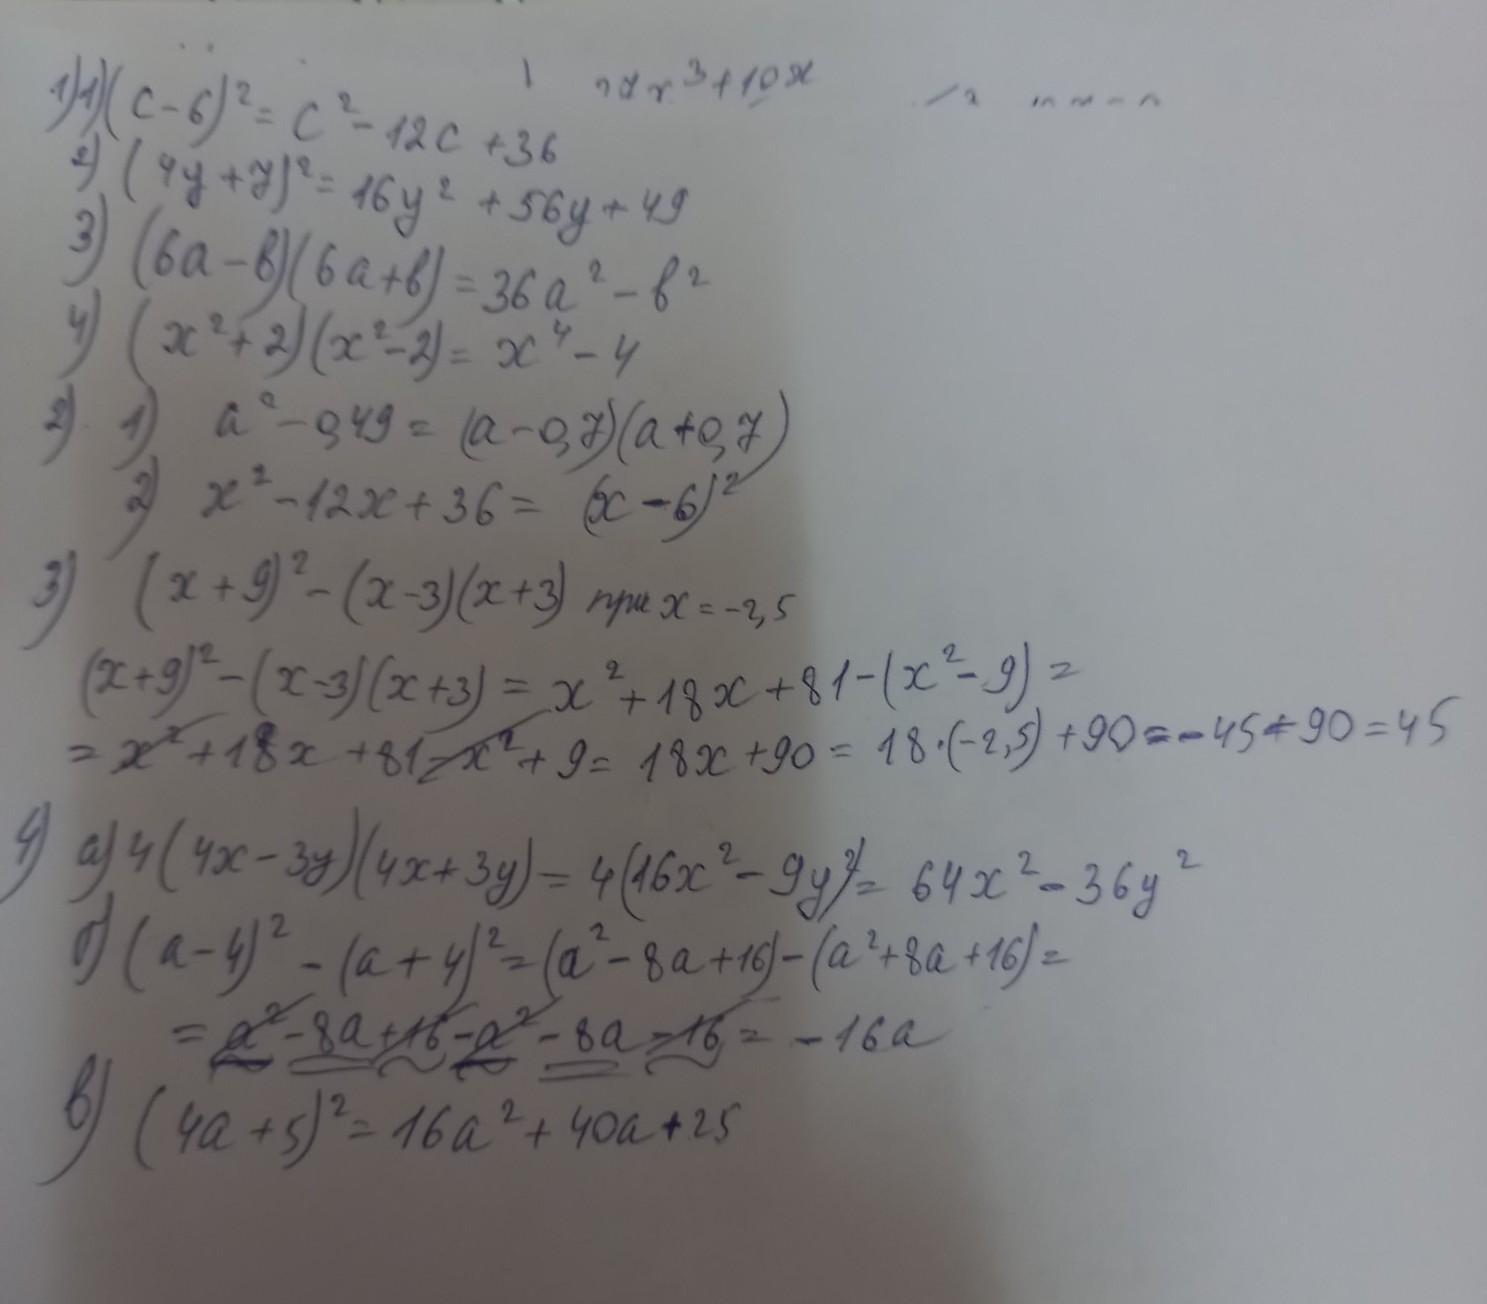 7x³+10x
1)1)(c-6)²=c²-12c+36
2) (4y+7)²=16y²+56y+49
3) (6a-b)(6a+b)=36a²-b²
4) (x²+2)(x²-2)=x⁴-4
2). 1) a²-0,49=(a-0,7)(a+0,7)
2) x²-12x+36= (x-6)²
3) (x+9)²-(x-3)(x+3) при x=-2,5
(x+9)²-(x-3)(x+3)=x²+18x+81-(x²-9)=
=x²+18x+81-x²+9=18x+90=18·(-2,5)+90=-45+90=45
4) а)4(4x-3y)(4x+3y)=4(16x²-9y²)=64x²-36y²
б)(a-4)²-(a+4)²=(a²-8a+16)-(a²+8a+16)=
=a²-8a+16-a²-8a-16=-16a
в) (4a+5)²=16a²+40a+25